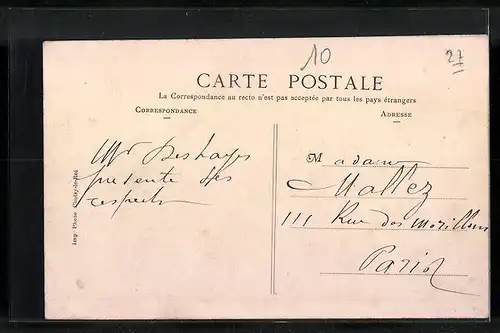 10
27
CARTE POSTALE
La Correspondance au recto n'est pas acceptée par tous les pays étrangers
CORRESPONDANCE
ADRESSE
Mr Deshayes
présente ses
respects
Madame
Mallez
111 Rue des Morillons
Paris
Imp. Photo Choisy-le-Roi